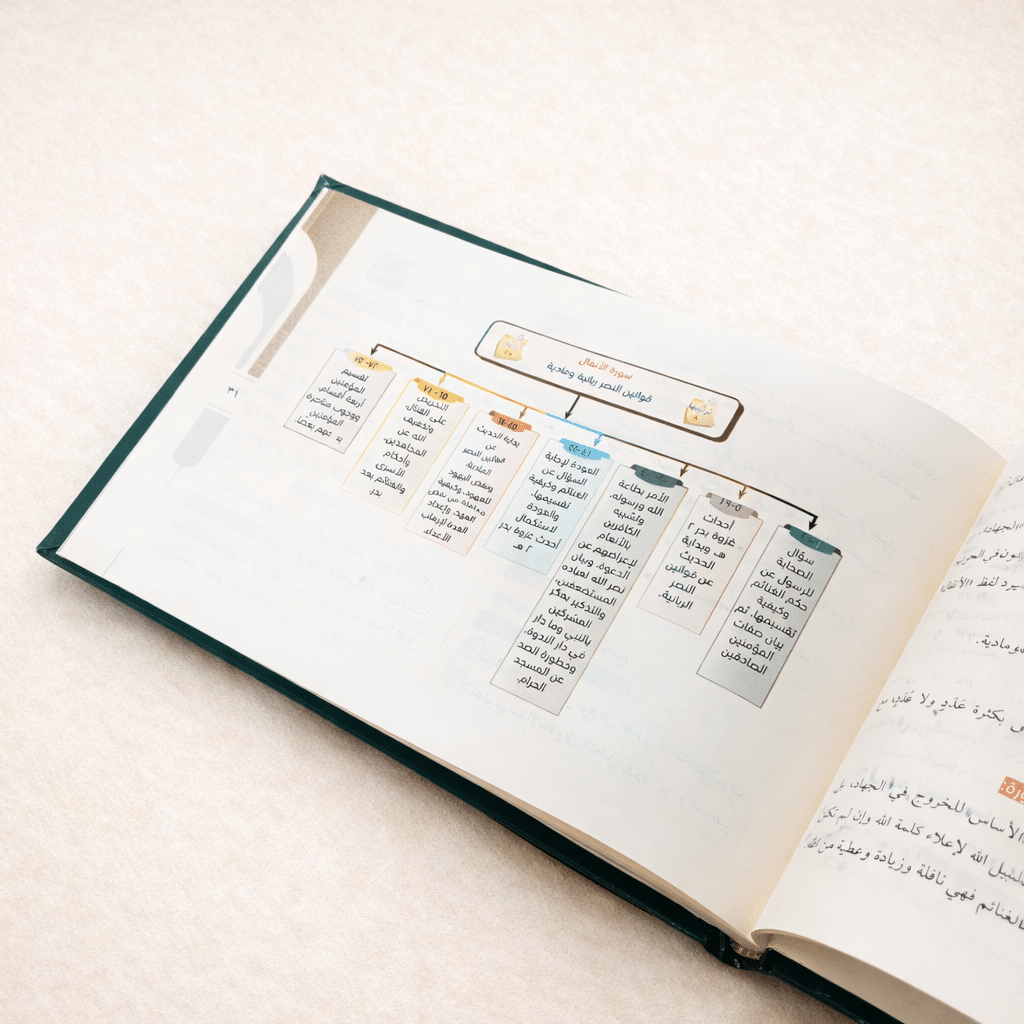 سورة الأنفال
قوانين النصر ربانية ومادية
ترتيبها
٨
آياتها
٧٥
سؤال
الصحابة
للرسول عن
حكم الغنائم
وكيفية
تقسيمها. ثم
بيان صفات
المؤمنين
الصادقين
أحداث
غزوة بدر ٢
هـ وبداية
الحديث
عن قوانين
النصر
الربانية.
الأمر بطاعة
الله ورسوله،
وتشبيه
الكافرين
بالأنعام
لإعراضهم عن
الدعوة. وبيان
نصر الله لعباده
المستضعفين،
والتذكير بمكر
المشركين
بالنبي وما دار
في دار الندوة،
وخطورة الصد
عن المسجد
الحرام.
العودة لإجابة
السؤال عن
الغنائم وكيفية
تقسيمها،
والعودة
لاستكمال
أحدث غزوة بدر
٢ هـ
بداية الحديث
عن
قوانين النصر
المادية،
ونقض اليهود
للعهود، وكيفية
العهد، وإعداد
العدة لإرهاب
الأعداء.
٦٥ - ٧١
التحريض
على القتال
وتخفيف
الله عن
المجاهدين،
وأحكام
الأسرى
والغنائم بعد
بدر.
٧٢- ٧٥
تقسيم
المؤمنين
أربعة أقسام،
ووجوب مناصرة
المؤمنين
بعضهم بعضا.
٣١
الجهاد،
بكثرة عَدَدٍ ولا عُدَدٍ
الأساس للخروج في الجهاد، بل
سبيل الله لإعلاء كلمة الله وإن لم تكن
الغنائم فهي نافلة وزيادة وعطية من الله